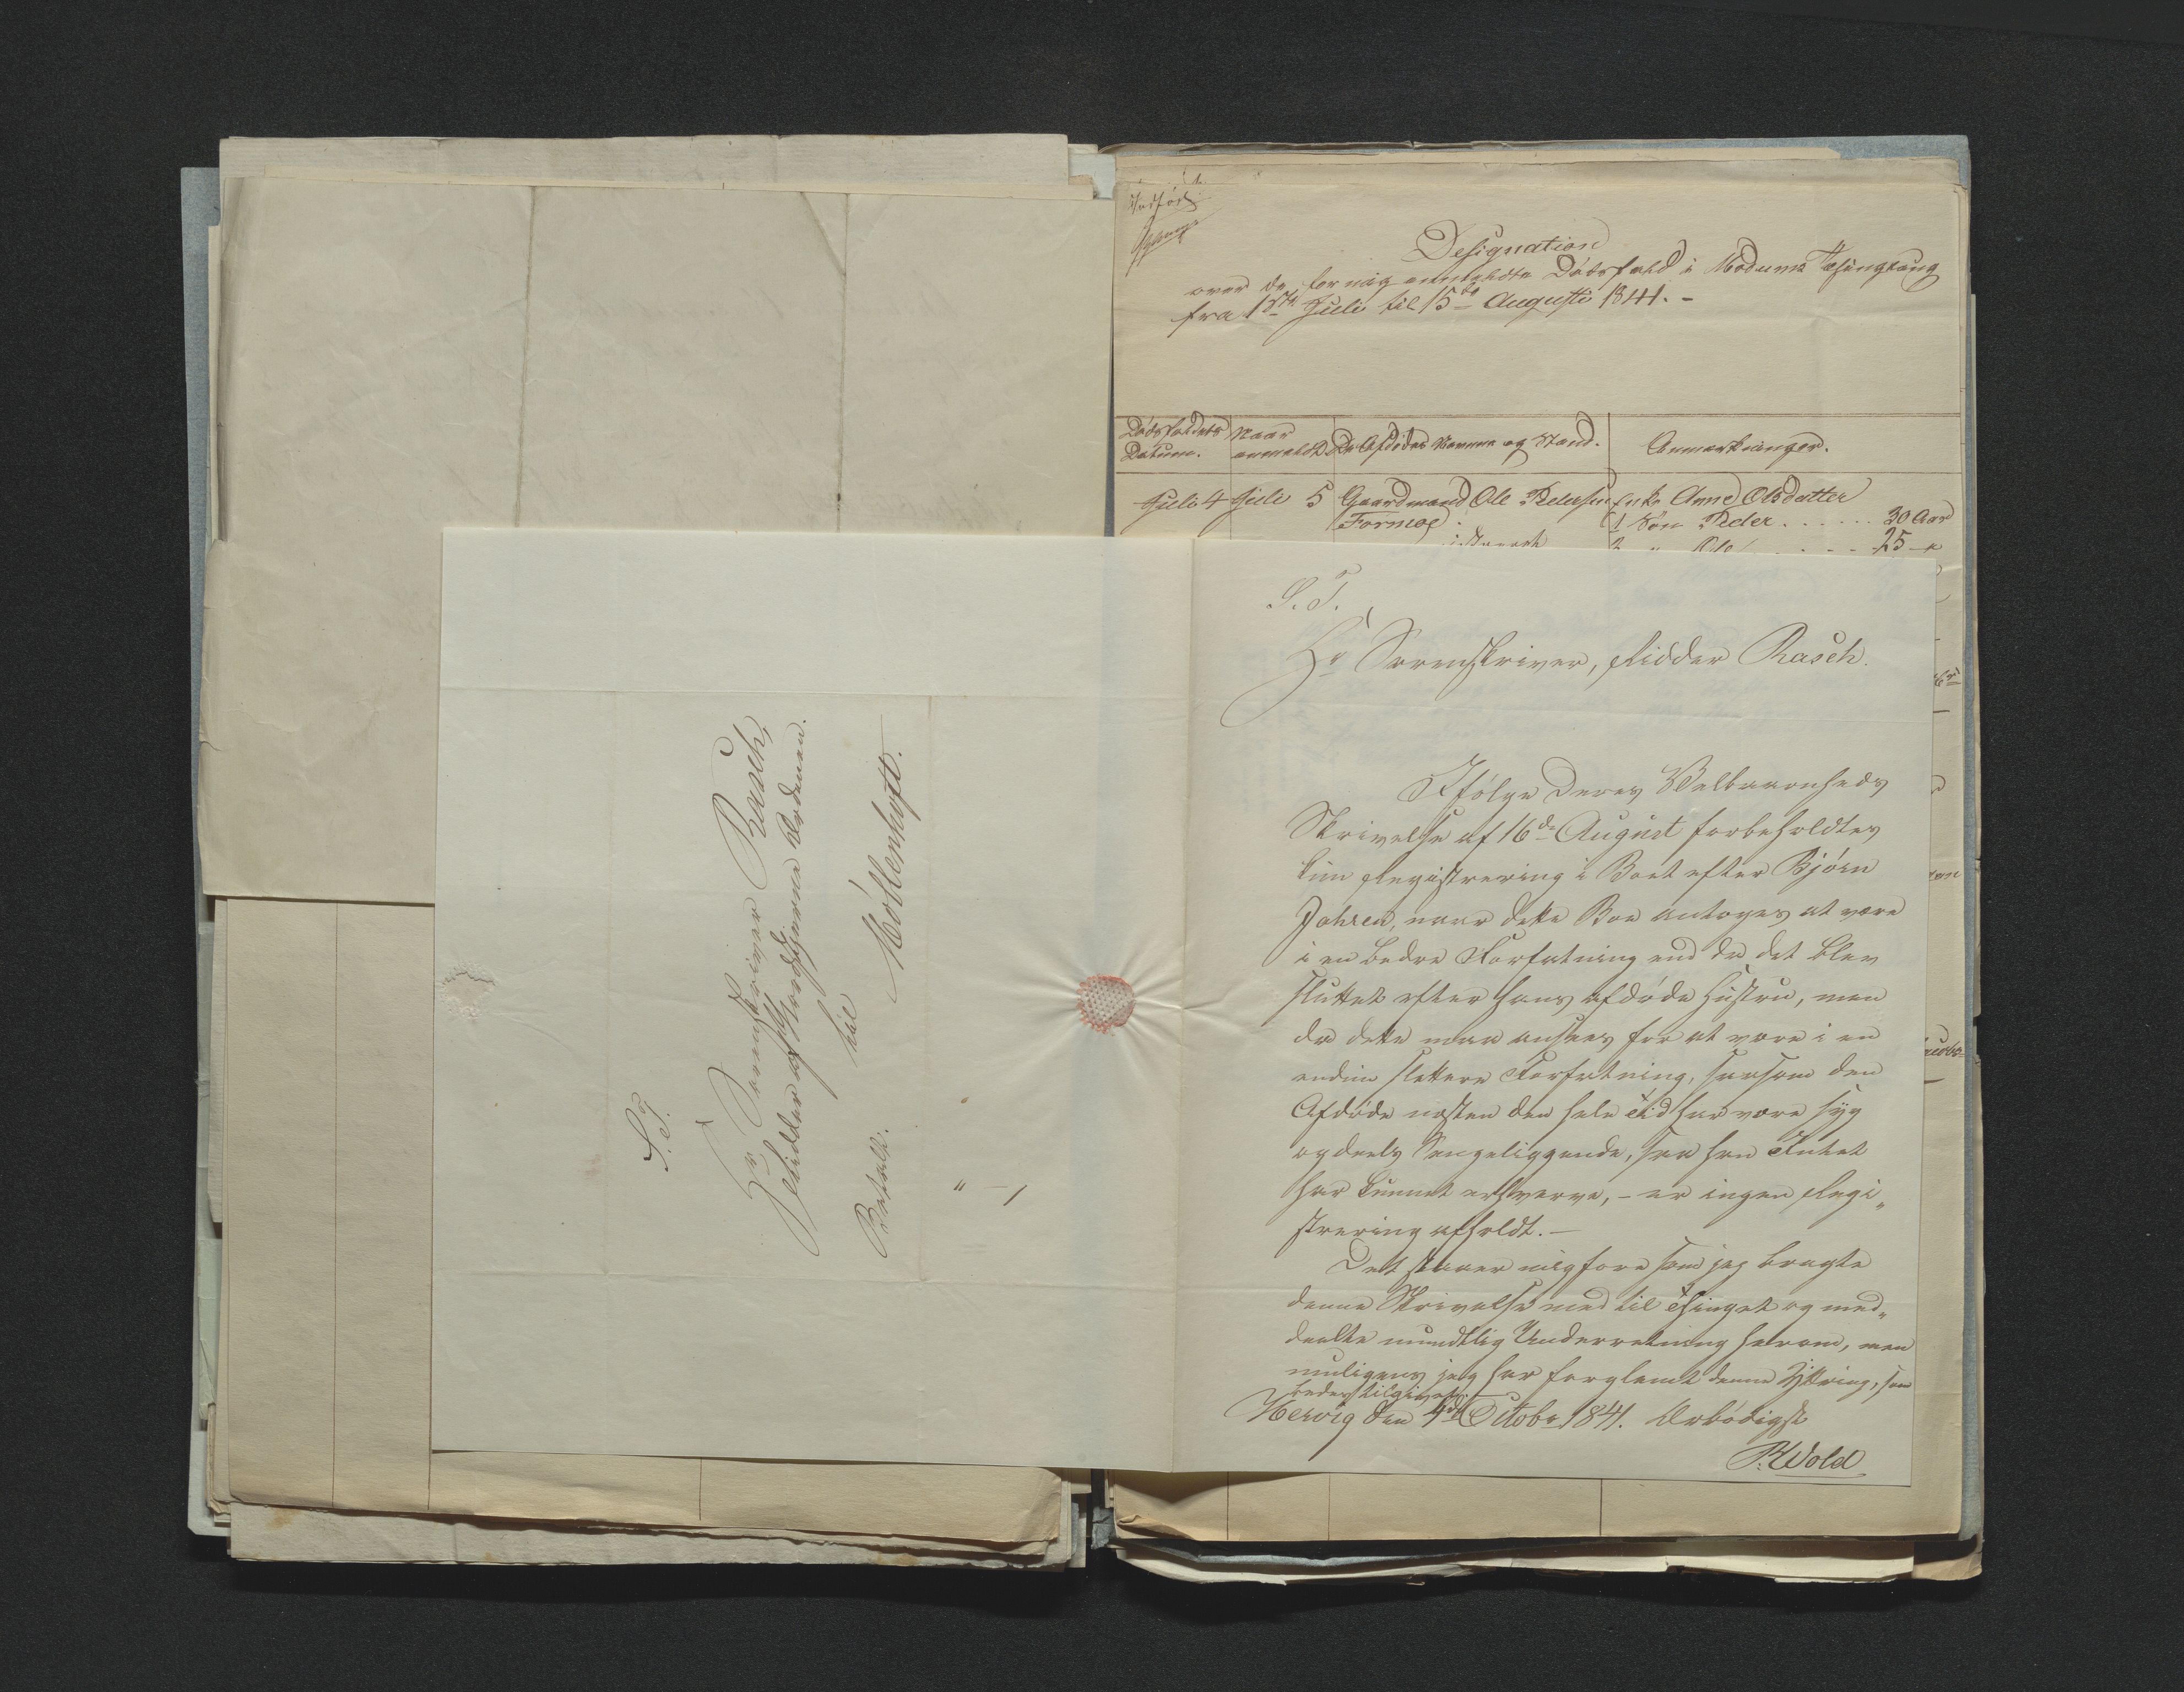 Indført
Designation
over de for mig anmeldte Dødsfald i Modums Thinglaug
fra 1ste Juli til 15de Augusti 1841. -
Dødsfaldets Datum.
Naar anmeldt
De Afdødes Navne og Stand.
Anmærkninger.
Juli 4 Juli 5 Gaardmand Ole Pedersen Enke Anne Olsdatter
Formoe. 1 Søn Peder . . . . . . 30 Aar
2 " Ole . . . . 25 -
S. T.
Hr Sorenskriver, Ridder Rasch.
Ifølge Deres Velbaarenheds
Skrivelse af 16de August forbeholdtes
kun Registrering i Boet efter Bjørn
Johren, naar dette Boe antoges at være
i en bedre Forfatning end da det blev
sluttet efter hans afdøde Hustru, men
da dette maa ansees for at være i en
endnu slettere Forfatning, saasom den
Afdøde næsten den hele Tid har være syg
og deels Sengeliggende, saa han Intet
har kunnet erhverve, - er ingen Regi„
strering afholdt. -
Det staaer mig fore som jeg bragte
denne Skrivelse med til Thinget og med„
deelte mundtlig Underretning herom, men
muligens jeg har forglemt denne Yttring, som
bedes tilgivet. -
den 4de Octobr 1841. Ærbødigst
P. Wold
S. T.
Hr Sorenskriver Rasch,
Ridder af Nordstjerne Ordenen.
til
Betalt. Møllenhoff.
" - 1